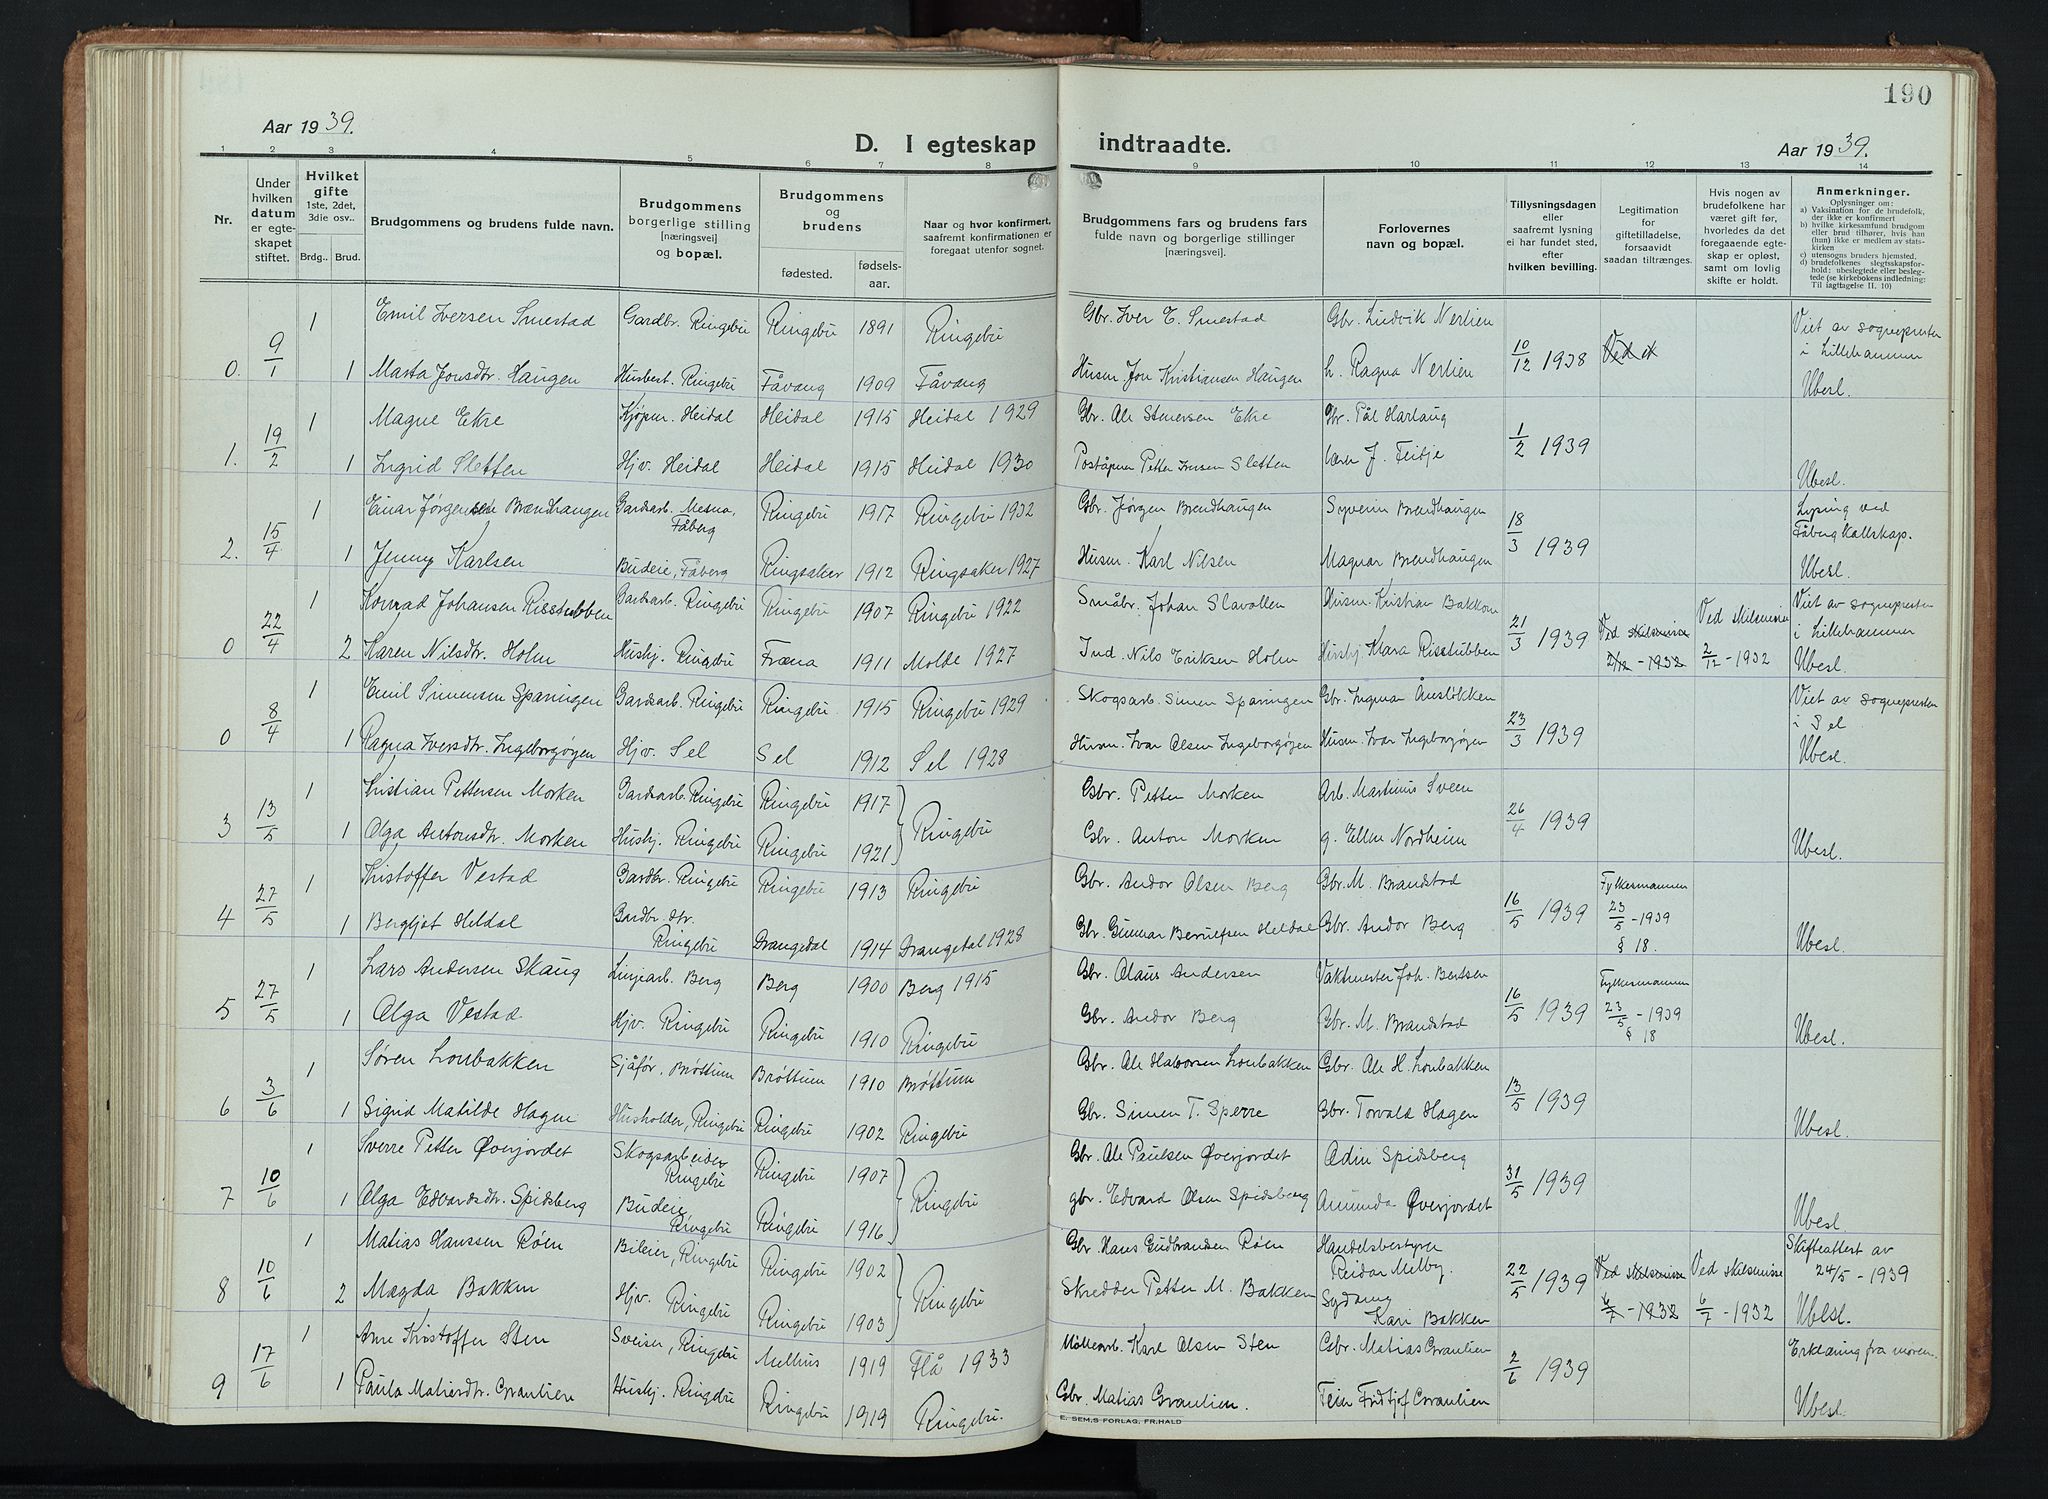 190
Aar 1939.
D. I egteskap indtraadte.
Aar 1939.
1 2 3 4 5 6 7 8 9 10 11 12 13 14
Nr.
Under hvilken datum er egteskapet stiftet.
Hvilket gifte 1ste, 2det, 3die osv..
Brdg. Brud.
Brudgommens og brudens fulde navn.
Brudgommens borgerlige stilling [næringsvei] og bopæl.
Brudgommens og brudens
fødested.
fødselsaar.
Naar og hvor konfirmert, saafremt konfirmationen er foregaat utenfor sognet.
Brudgommens fars og brudens fars fulde navn og borgerlige stillinger [næringsvei].
Forlovernes navn og bopæl.
Tillysningsdagen eller saafremt lysning ei har fundet sted, efter hvilken bevilling.
Legitimation for giftetilladelse, forsaavidt saadan tiltrænges.
Hvis nogen av brudefolkene har været gift før, hvorledes da det foregaaende egteskap er opløst, samt om lovlig skifte er holdt.
Anmerkninger.
Oplysninger om:
a) Vaksination for de brudefolk, der ikke er konfirmert
b) hvilke kirkesamfund brudgom eller brud tilhører, hvis han (hun) ikke er medlem av statskirken
c) utensogns bruders hjemsted,
d) brudefolkenes slegtsskapsforhold: ubeslegtede eller beslegtede (se kirkebokens indledning: Til iagttagelse II, 10)
0. 9/1 1 Emil Iversen Smestad Gardbr. Ringebu Ringebu 1891 Ringebu Gbr. Iver E. Smestad Gbr. Ludvik Nerlien 10/12 1938 Viet av sognepresten i Lillehammer
1 Marta Jonsdtr. Haugen Husbest. Ringebu Fåvang 1909 Fåvang Husm. Jon Kristiansen Haugen h. Ragna Nerlien Ubesl.
1. 19/2 1 Magne Ekre Kjøpm. Heidal Heidal 1915 Heidal 1929 Gbr. Ole Stenersen Ekre Gbr. Pål Harlaug 1/2 1939
1 Ingrid Sletten Hjv. Heidal Heidal 1915 Heidal 1930 Poståpner Petter Iversen Sletten Lærer J. Teitje Ubesl.
2. 15/4 1 Einar Jørgensen Brændhaugen Gardsarb. Mesna, Fåberg Ringebu 1917 Ringebu 1932 Gbr. Jørgen Brendhaugen Syverin Brendhaugen 18/3 1939 Lysing ved Fåberg kallskap.
1 Jenny Karlsen Budeie, Fåberg Ringsaker 1912 Ringsaker 1927 Husm. Karl Nilsen Magnar Brendhaugen Ubesl.
0 22/4 1 Konrad Johansen Risstubben Gardsarb. Ringebu Ringebu 1907 Ringebu 1922 Småbr. Johan Slavollen Husm. Kristian Bakkom 21/3 1939 Ved skilsmisse 2/12 - 1932 Ved skilsmisse 2/12 - 1932 Viet av sognepresten i Lillehammer
2 Karen Nilsdtr. Holm Hushj. Ringebu Fræna 1911 Molde 1927 Ind. Nils Eriksen Holm Hushj. Mara Risstubben Ubesl.
0 8/4 1 Emil Simensen Sparingen Gardsarb. Ringebu Ringebu 1915 Ringebu 1929 Skogsarb. Simen Sparingen Gbr. Ingmar Ånsløkken 23/3 1939 Viet av sognepresten i Sel
1 Ragna Iversdtr. Ingeborgøyen Hjv. Sel Sel 1912 Sel 1928 Husm. Ivar Olsen Ingeborgøyen Husm. Ivar Ingeborgøyen Ubesl.
3 13/5 1 Kristian Pettersen Morken Gardsarb. Ringebu Ringebu 1917 Ringebu Gbr. Petter Morken Arb. Martinus Sveen 26/4 1939
1 Olga Antonsdtr. Morken Hushj. Ringebu Ringebu 1921 Gbr. Anton Morken g. Ellen Nordheim Ubesl.
4 27/5 1 Kristoffer Vestad Gardbr. Ringebu Ringebu 1913 Ringebu Gbr. Andor Olsen Berg Gbr. M. Brandstad 16/5 1939 Fylkesmannen 23/5 - 1939 § 18.
1 Bergljot Heldal Gardbr. dtr. Ringebu Drangedal 1914 Drangedal 1928 Gbr. Gunnar Berulfsen Heldal Gbr. Andor Berg Ubesl.
5 27/5 1 Lars Andersen Skaug Linjearb. Berg Berg 1900 Berg 1915 Gbr. Olaus Andersen Vaktmester Joh. Bertsen 16/5 1939 Fylkesmannen 23/5 - 1939 § 18
1 Olga Vestad Hjv. Ringebu Ringebu 1910 Ringebu Gbr. Andor Berg Gbr. M. Brandstad Ubesl.
6 3/6 1 Søren Loubakken Sjåfør, Brøttum Brøttum 1910 Brøttum Gbr. Ole Halvorsen Loubakken Gbr. Ole H. Loubakken 13/5 1939
1 Sigrid Matilde Hagen Husholder, Ringebu Ringebu 1902 Ringebu Gbr. Simen T. Sperre Gbr. Torvald Hagen Ubesl.
7 10/6 1 Sverre Petter Øverjordet Skogsarbeider Ringebu Ringebu 1907 Ringebu Gbr. Ole Paulsen Øverjordet Odin Spidsberg 31/5 1939
1 Olga Edvardsdtr. Spidsberg Budeie, Ringebu Ringebu 1916 gbr. Edvard Olsen Spidsberg Amunda Øverjordet Ubesl.
8 10/6 1 Matias Hanssen Røen Bileier, Ringebu Ringebu 1902 Ringebu Gbr Hans Gudbrandsen Røen Handelsbestyrer Reidar Melby. 22/5 1939 Ved skilsmisse 6/7 - 1932 Ved skilsmisse 6/7 - 1932 Skifteattest av 24/5 - 1939
2 Magda Bakken Hjv. Ringebu Ringebu 1903 Skredder Petter M. Bakken Sydame Kari Bakken Ubesl.
9 17/6 1 Arne Kristoffer Sten Sveiser, Ringebu Melhus 1919 Flå 1933 Møllearb. Karl Olsen Sten Gbr. Matias Graulien 2/6 1939 Erklæring fra moren.
1 Paula Matiasdtr. Graulien Hushj. Ringebu Ringebu 1919 Ringebu. Gbr. Matias Graulien. Feier Fridtjof Graulien Ubesl.
E. SEM,S FORLAG, FR.HALD